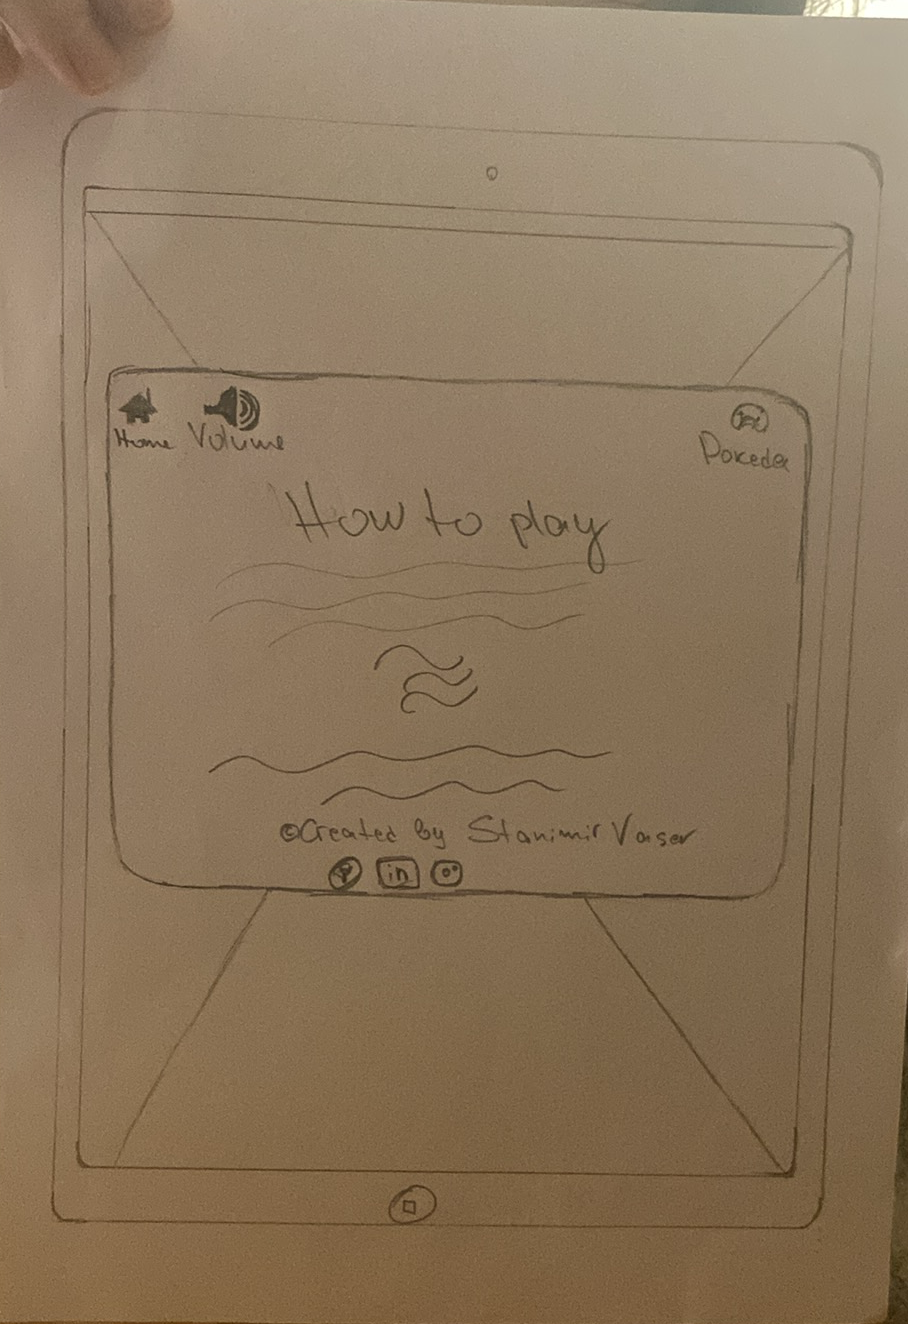 Home Volume
Pokedex
How to play
©Created by Stanimir Vasev
in